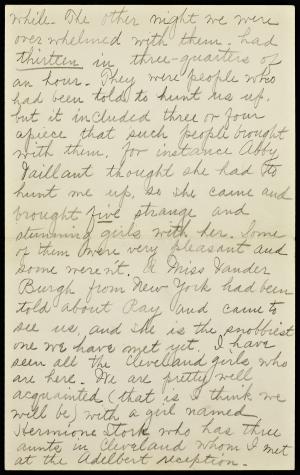 while. The other night we were
over whelmed with them. had
thirteen in three-quarters of
an hour. They were people who
had been told to hunt us up,
but it included three or four
apiece that such people brought
with them, for instance Abby
Vaillant thought she had to
hunt me up, so she came and
brought five strange and
stunning girls with her. Some
of them were very pleasant and
some weren't. A Miss Vander
Burgh from New York had been
told about Ray and came to
see us, and she is the snobbiest
one we have met yet. I have
seen all the Cleveland girls who
are here. We are pretty well
acquainted (that is I think we
will be) with a girl named
Hermione Stork who has three
aunts in Cleveland whom I met
at the Adelbert reception.